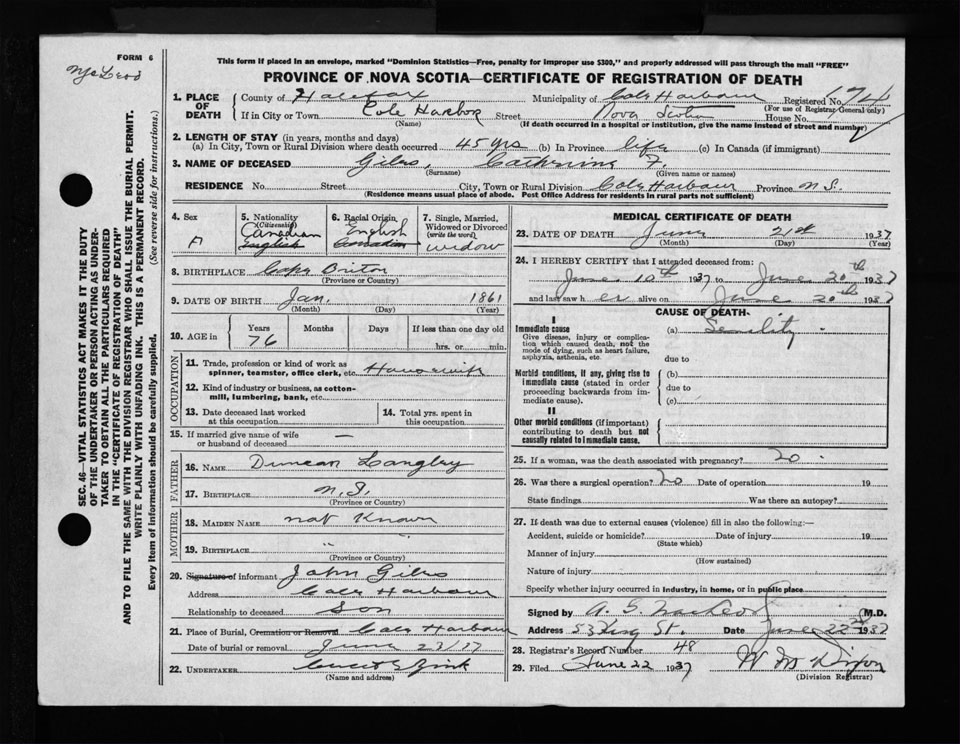 FORM 6
McLeod
This form if placed in an envelope, marked "Dominion Statistics—Free, penalty for improper use $300," and properly addressed will pass through the mail "FREE"
PROVINCE OF NOVA SCOTIA—CERTIFICATE OF REGISTRATION OF DEATH
1. PLACE OF DEATH
County of Halifax Municipality of Cole Harbour Registered No.
(For use of Registrar-General only)
If in City or Town Cole Harbor Street Nova Scotia House No.
(Name) (If death occurred in a hospital or institution, give the name instead of street and number)
2. LENGTH OF STAY (in years, months and days)
(a) In City, Town or Rural Division where death occurred 45 yrs (b) In Province life (c) In Canada (if immigrant)
3. NAME OF DECEASED Giles, Catherine F.
(Surname) (Given name or names)
RESIDENCE No. Street City, Town or Rural Division Cole Harbour Province N.S.
(Residence means usual place of abode. Post Office Address for residents in rural parts not sufficient)
4. Sex
F
5. Nationality
(Citizenship)
Canadian
English
6. Racial Origin
English
Canadian
7. Single, Married, Widowed or Divorced
(write the word)
widow
8. BIRTHPLACE Cape Briton
(Province or Country)
9. DATE OF BIRTH Jan. 1861
(Month) (Day) (Year)
10. AGE in
Years Months Days If less than one day old
76 hrs. or min.
OCCUPATION
11. Trade, profession or kind of work as spinner, teamster, office clerk, etc. Housewife
12. Kind of industry or business, as cotton-mill, lumbering, bank, etc.
13. Date deceased last worked at this occupation
14. Total yrs. spent in this occupation
15. If married give name of wife or husband of deceased —
FATHER
16. NAME Duncan Langley
17. BIRTHPLACE N.S.
(Province or Country)
MOTHER
18. MAIDEN NAME not Known
19. BIRTHPLACE " "
(Province or Country)
20. Signature of informant John Giles
Address Cole Harbour
Relationship to deceased Son
21. Place of Burial, Cremation or Removal Cole Harbour
Date of burial or removal June 23/37
22. UNDERTAKER Zink
(Name and address)
MEDICAL CERTIFICATE OF DEATH
23. DATE OF DEATH June 21st 1937
(Month) (Day) (Year)
24. I HEREBY CERTIFY that I attended deceased from:
June 10th 1937 to June 20th 1937
and last saw her alive on June 20th 1937
CAUSE OF DEATH
I
Immediate cause (a) Senility
Give disease, injury or complication which caused death, not the mode of dying, such as heart failure, asphyxia, asthenia, etc.
due to
Morbid conditions, if any, giving rise to immediate cause (stated in order proceeding backwards from immediate cause).
(b)
due to
(c)
II
Other morbid conditions (if important) contributing to death but not causally related to immediate cause.
25. If a woman, was the death associated with pregnancy? no
26. Was there a surgical operation? no Date of operation 19
State findings Was there an autopsy?
27. If death was due to external causes (violence) fill in also the following:—
Accident, suicide or homicide? Date of injury 19
(State which)
Manner of injury
(How sustained)
Nature of injury
Specify whether injury occurred in Industry, in home, or in public place
Signed by A. G. MacLeod M.D.
Address 53 King St. Date June 22nd 1937
28. Registrar's Record Number 48
29. Filed June 22 1937 W Dixon
(Division Registrar)
SEC. 46—VITAL STATISTICS ACT MAKES IT THE DUTY
OF THE UNDERTAKER OR PERSON ACTING AS UNDER-
TAKER TO OBTAIN ALL THE PARTICULARS REQUIRED
IN THE "CERTIFICATE OF REGISTRATION OF DEATH"
AND TO FILE THE SAME WITH THE DIVISION REGISTRAR WHO SHALL ISSUE THE BURIAL PERMIT.
WRITE PLAINLY WITH UNFADING INK. THIS IS A PERMANENT RECORD.
Every item of information should be carefully supplied. (See reverse side for instructions.)